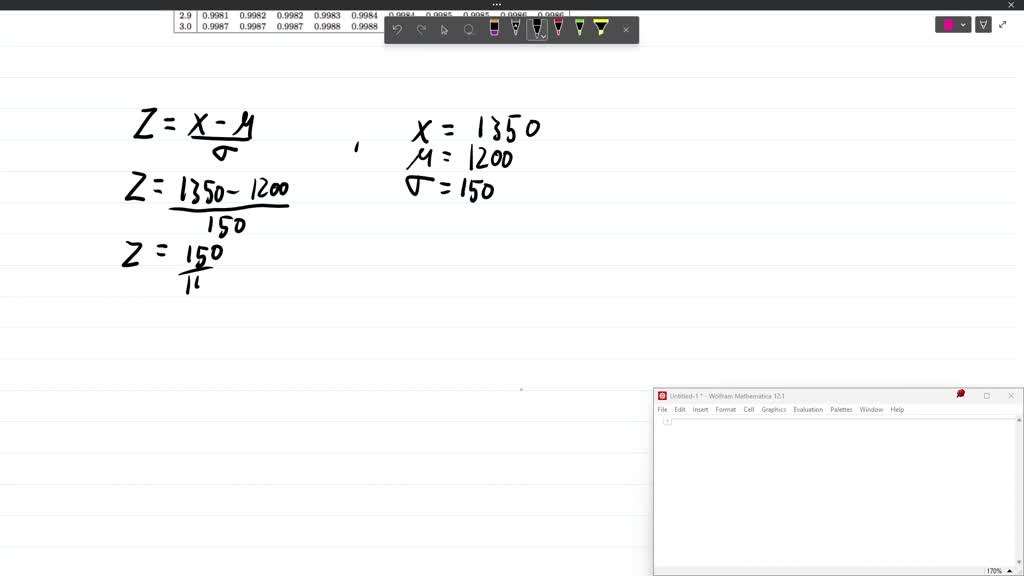 2.9 0.9981 0.9982 0.9982 0.9983 0.9984 0.9984 0.9985 0.9985 0.9986 0.9986
3.0 0.9987 0.9987 0.9987 0.9988 0.9988
Z = x - μ / σ , x = 1350
μ = 1200
Z = 1350 - 1200 / 150 σ = 150
Z = 150
Untitled-1 * - Wolfram Mathematica 12.1
File Edit Insert Format Cell Graphics Evaluation Palettes Window Help
170%